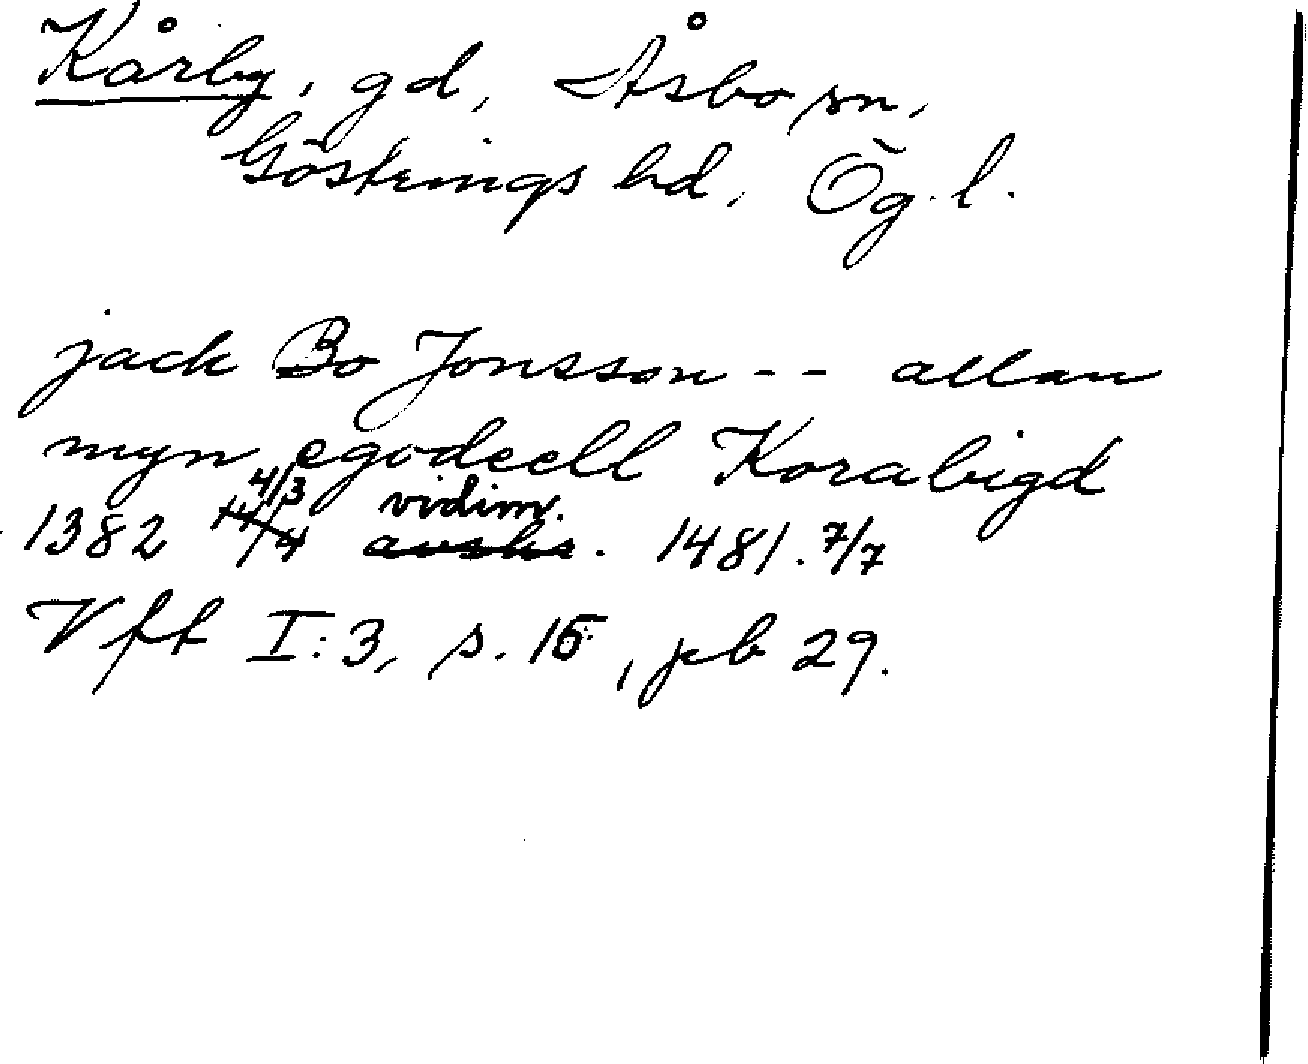 Kårby, gd, Åsbo sn,
Göstrings hd, Ög. l.
jack Bo Jonsson -- allan
myn egodeell Korabigd
1382 4/3 vidim. 1481. 7/7
Vfl I:3, s. 15, pb 29.